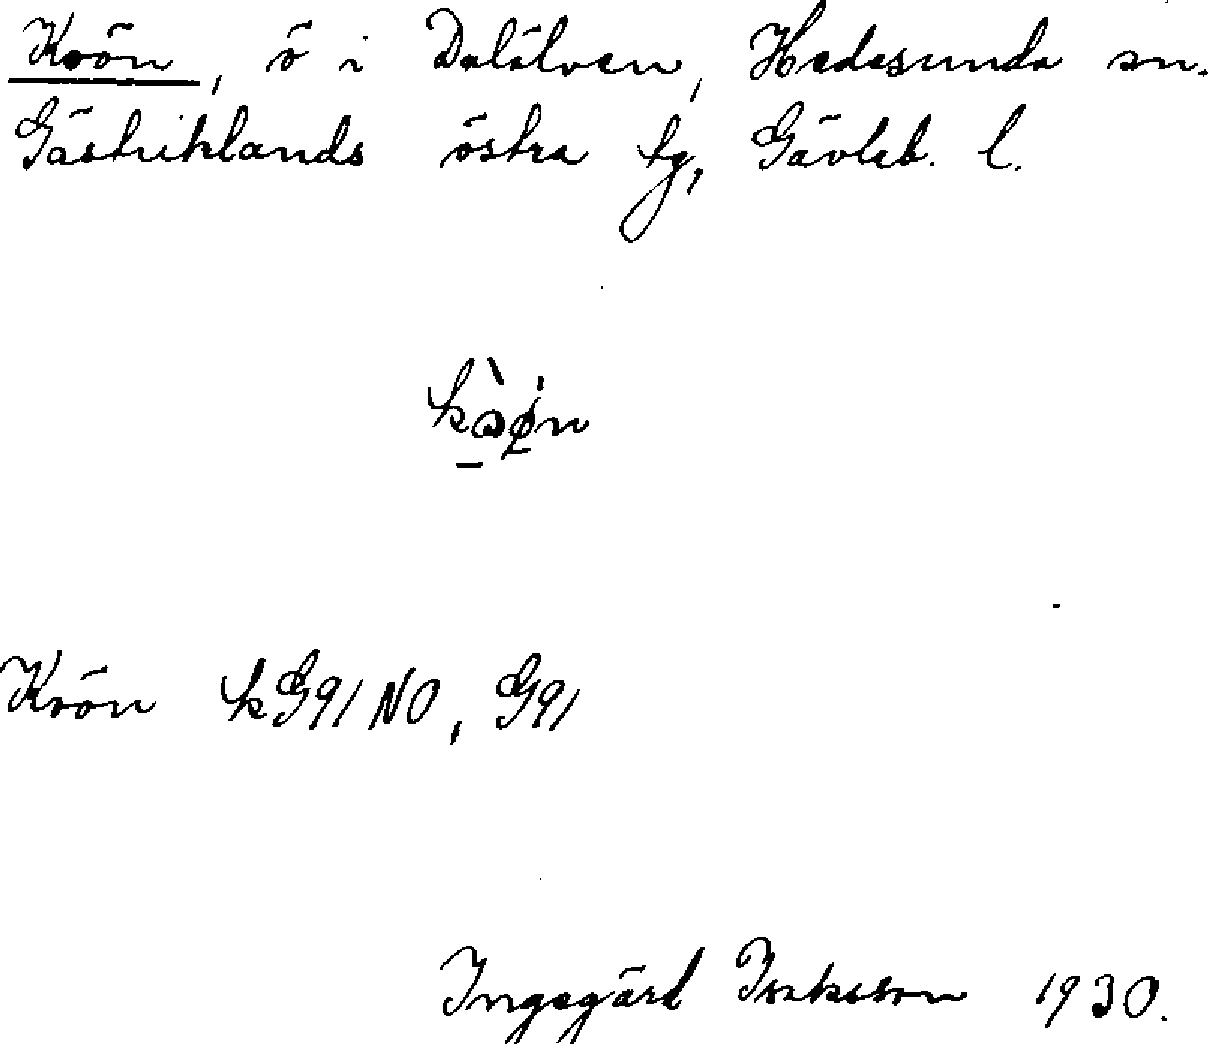 Koön, ö i Dalälven, Hedesunda sn.
Gästriklands östra tg, Gävleb. l.
Koön kG91NO, G91
Ingegärd Isaksson 1930.